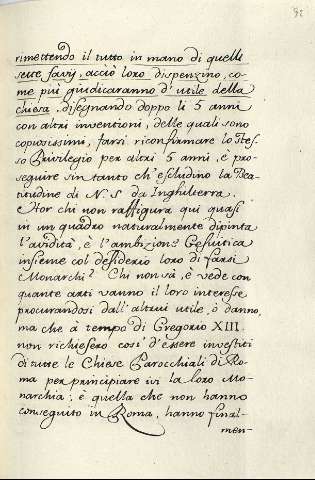 rimettendo il tutto in mano di quelli
sette savij, acciò loro dispenzino, co-
me più giudicaranno d'utile della
chiesa, disegnando doppo li 5 anni
con altri inventioni, delle quali sono
copiosissimi, farsi riconfirmare lo stes-
so Privilegio per altri 5 anni, è pro-
seguire sin tanto ch'escludino la Bea-
titudine di N. S. da Inghilterra.
Hor chi non raffigura qui quasi
in un quadro naturalmente dipinta
l'avidità, è l'ambizione Gesuitica
insieme col desiderio loro di farsi
Monarchi? Chi non sà, è vede con
quante arti vanno il loro interesse
procurandosi dall'altrui utile, ò danno,
ma che à tempo di Gregorio XIII.
non richiesero così d'essere investiti
di tutte le Chiese Parocchiali di Ro-
ma per principiare ivi la loro Mo-
narchia; è quella che non hanno
conseguito in Roma, hanno final-
men-